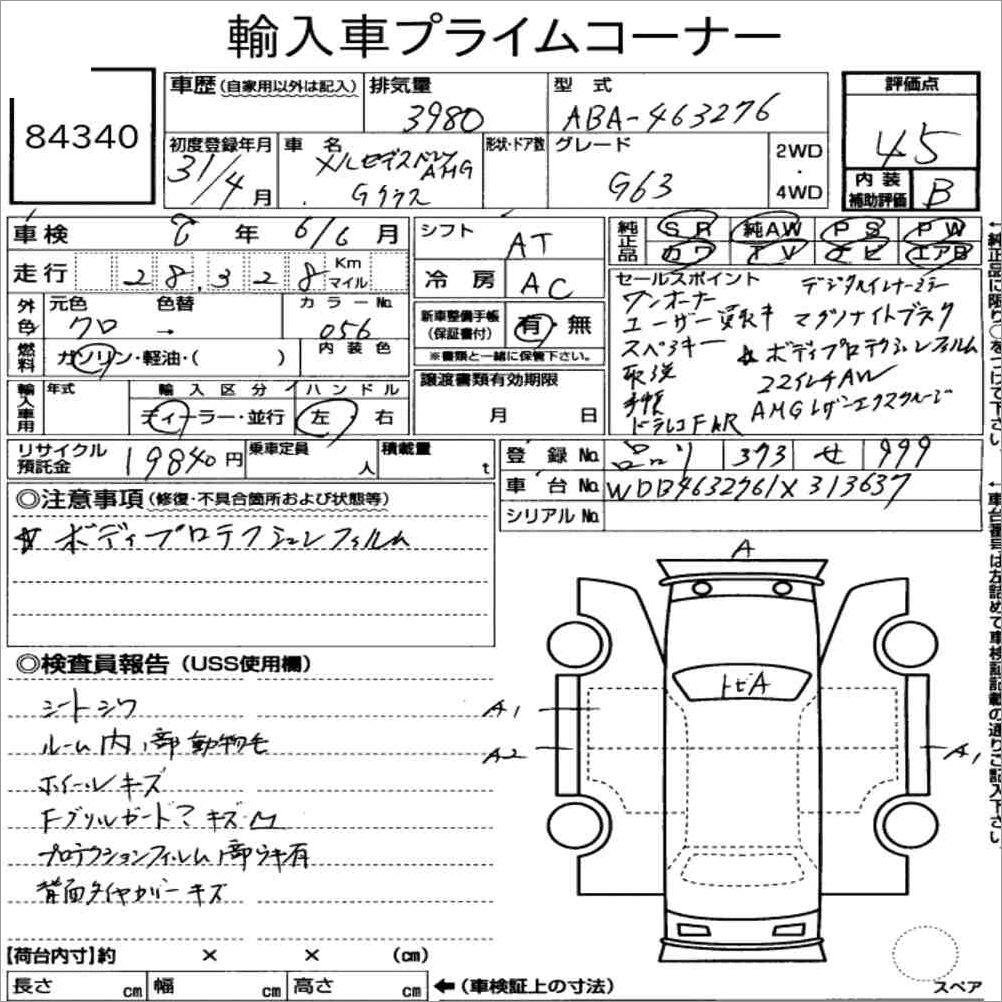 輸入車プライムコーナー
84340
車歴(自家用以外は記入)
排気量
3980
型式
ABA-463276
評価点
45
初度登録年月
31/4月
車名
メルセデスベンツ
AMG
Gクラス
形状・ドア数
グレード
G63
2WD
・
4WD
内装
補助評価
B
車検 年 6/6月
シフト
AT
純正品
SR 純AW PS PW
カワ TV ナビ エアB
走行 28,328 Km マイル
冷房
AC
外色
元色 色替 カラーNo.
クロ → 056
燃料
ガソリン・軽油・( )
内装色
新車整備手帳
(保証書付)
有・無
※書類と一緒に保管下さい。
セールスポイント
ワンオーナー
ユーザー買取車
スペアキー
取説
手帳
ドラレコF&R
デジタルインナーミラー
マグノナイトブラック
☆ボディプロテクションフィルム
22インチAW
AMGレザーエクスクルーシブ
輸入車用
年式
輸入区分
ディーラー・並行
ハンドル
左 右
譲渡書類有効期限
月 日
リサイクル
預託金
19840円
乗車定員
人
積載量
t
登録No. 品川 373 せ 999
車台No. WDB4632761X313637
シリアルNo.
◎注意事項(修復・不具合箇所および状態等)
☆ボディプロテクションフィルム
◎検査員報告(USS使用欄)
シートシワ
ルーム内1部動物毛
ホイールキズ
Fグリルガードアキズ凹
プロテクションフィルム1部ウキ有
背面タイヤカバーキズ
A
トビA
A1
A2
A1
【荷台内寸】約 × × (cm)
長さ cm 幅 cm 高さ cm
←(車検証上の寸法)
スペア
←純正品に限り○をつけて下さい。
←車台番号は左詰めで車検証記載の通りご記入下さい。